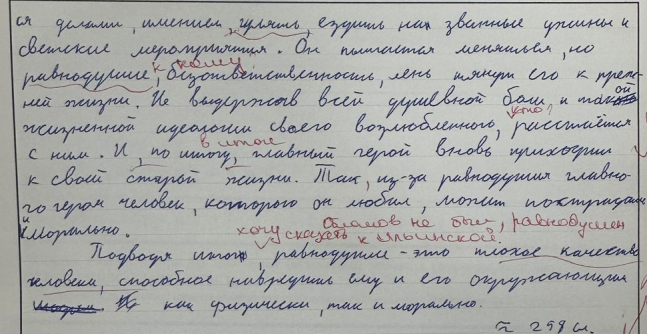 ся делами, имением, гулять, ездить на званные ужины и
светские мероприятия. Он пытается меняться, но
к кому
равнодушие, безответственность, лень тянут его к преж-
ней жизни. Не выдержав всей душевной боли и такой
кто?
жизненной идеологии своего возлюбленного, расстаётся
в итоге
с ним. И, по итогу, главный герой вновь приходит
к своей старой жизни. Так, из-за равнодушия главно-
го героя человек, которого он любил, может пострадать
и морально.
Обломов не был равнодушен
хочу сказать к Ильинской.
Подводя итог, равнодушие - это плохое качество
человека, способное навредить ему и его окружающим
как физически, так и морально.
≈ 299 сл.